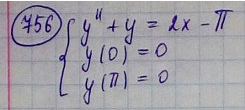 756
y'' + y = 2x - π
y(0) = 0
y(π) = 0